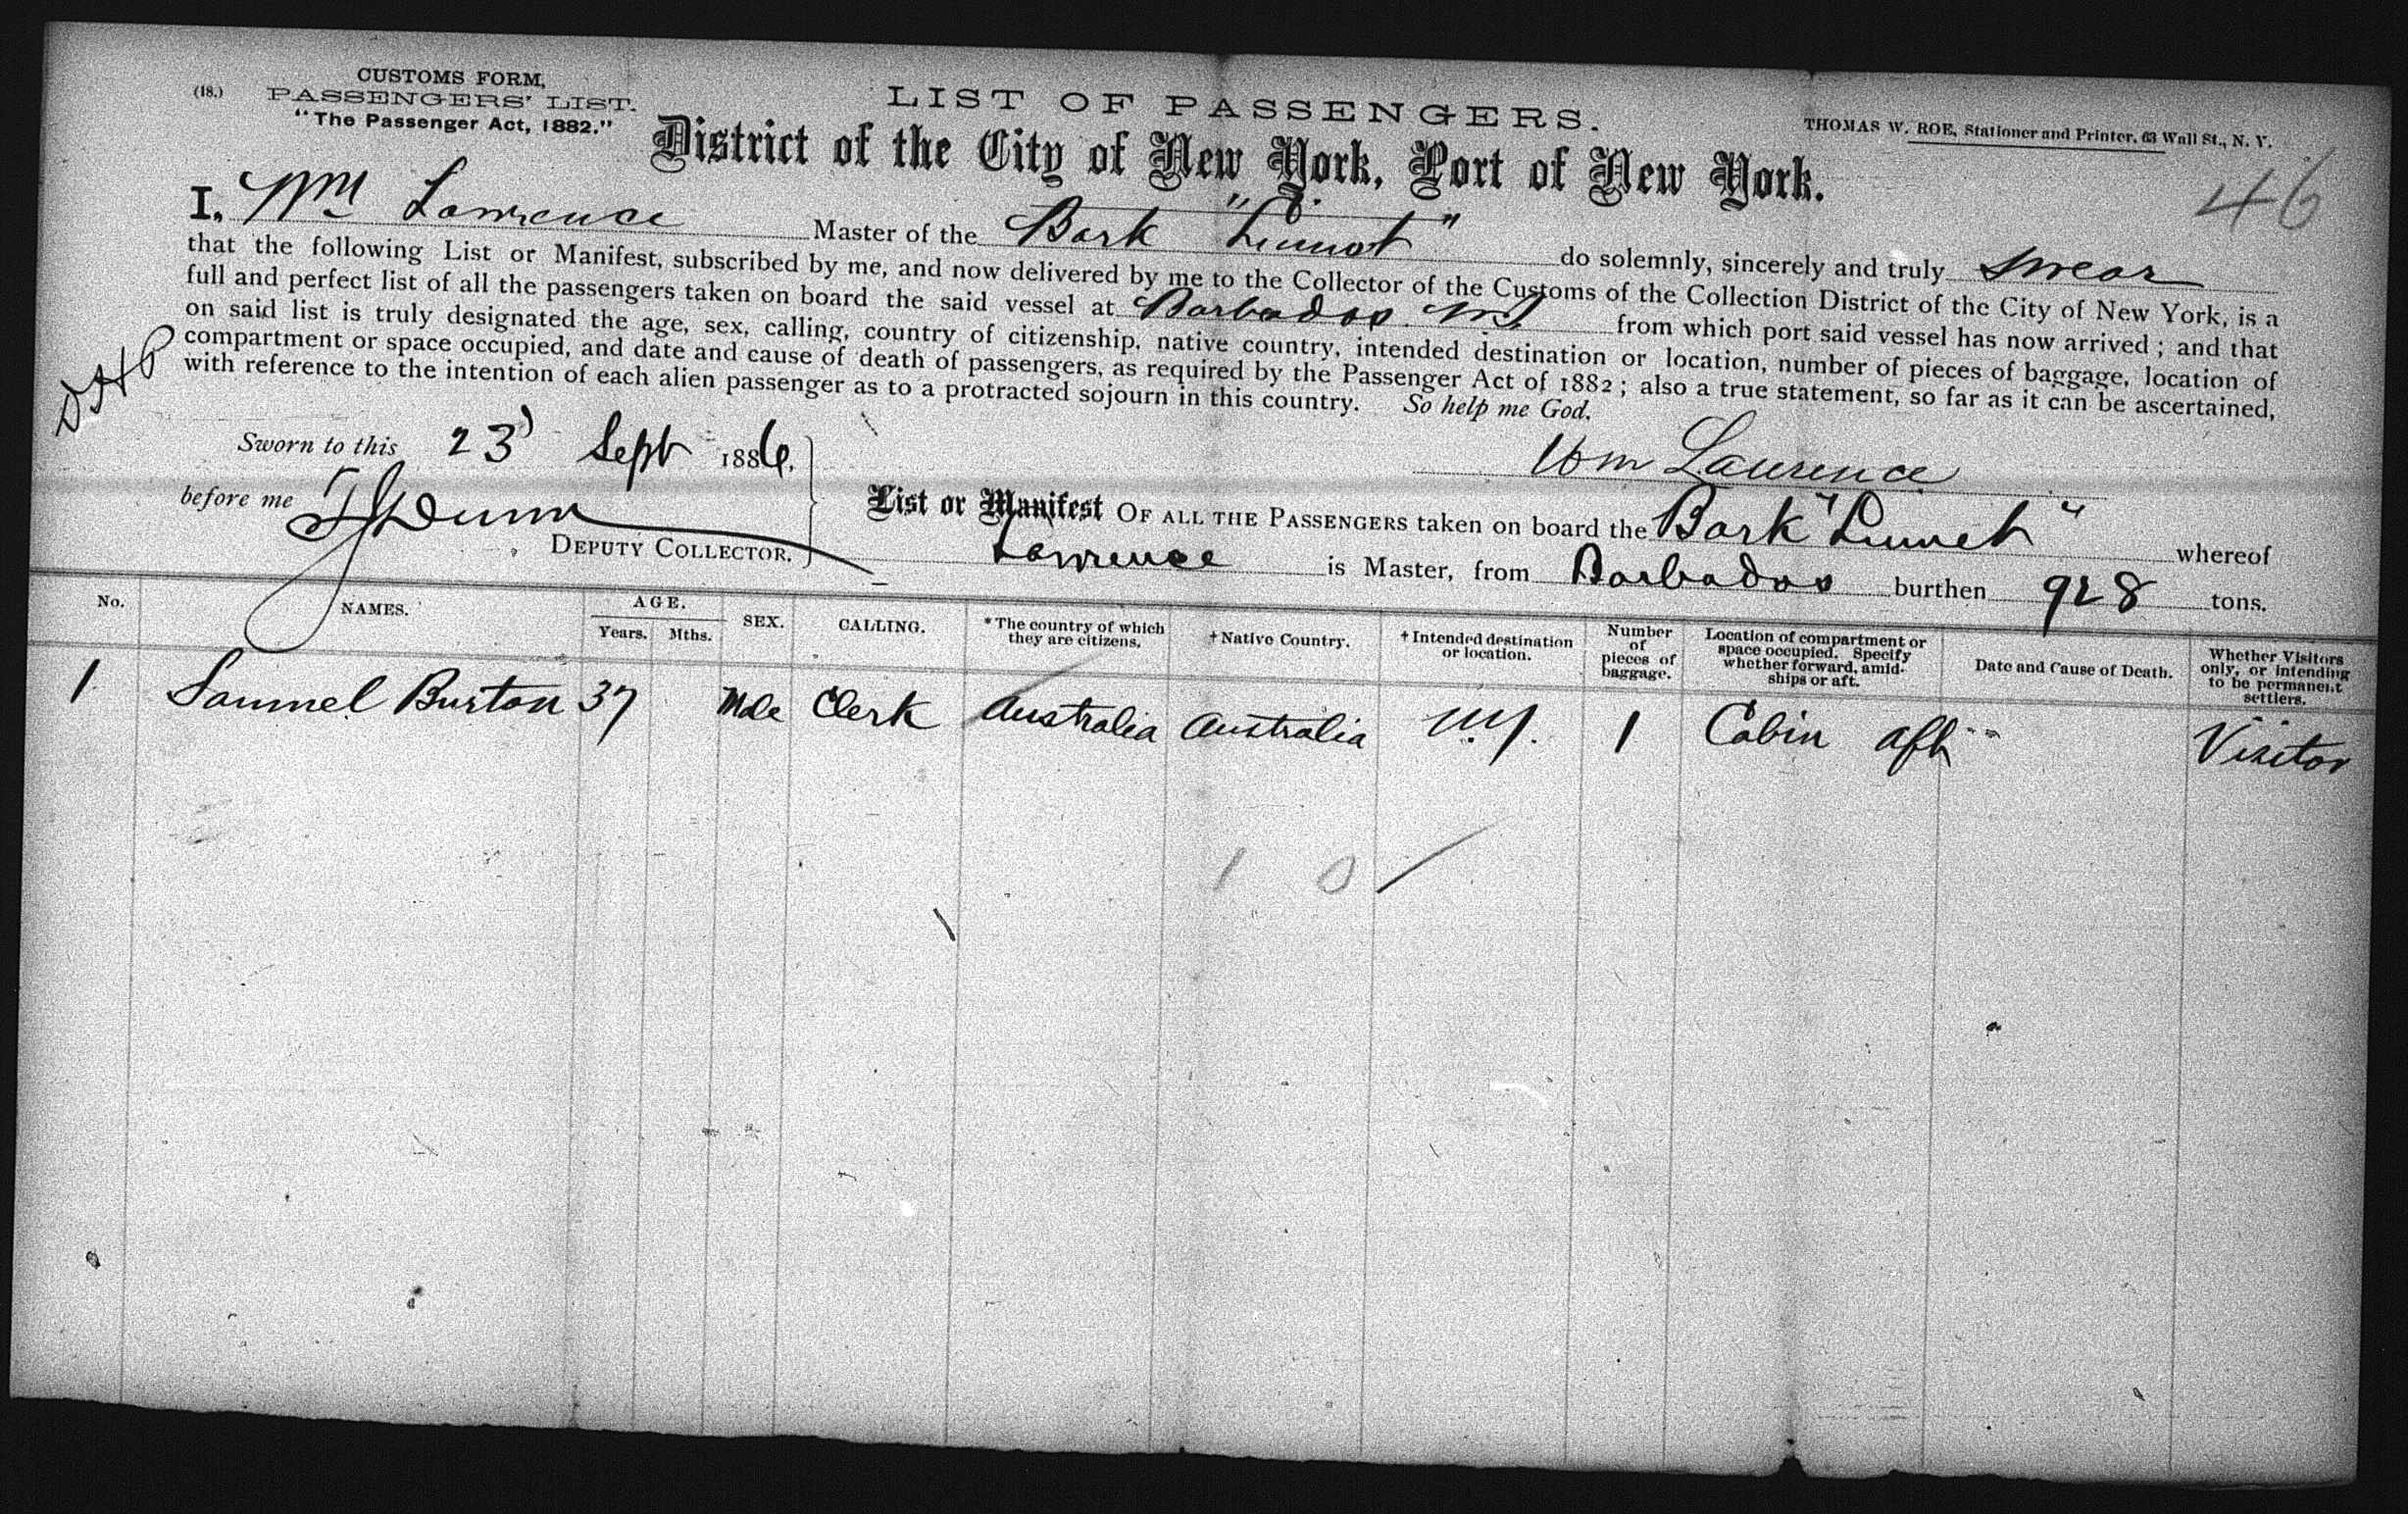 (18.)
CUSTOMS FORM,
PASSENGERS' LIST.
"The Passenger Act, 1882."
LIST OF PASSENGERS.
THOMAS W. ROE, Stationer and Printer, 63 Wall St., N. Y.
District of the City of New York, Port of New York.
46
I, Wm Lawrence Master of the Bark "Linnet" do solemnly, sincerely and truly swear
that the following List or Manifest, subscribed by me, and now delivered by me to the Collector of the Customs of the Collection District of the City of New York, is a
full and perfect list of all the passengers taken on board the said vessel at Barbados from which port said vessel has now arrived; and that
on said list is truly designated the age, sex, calling, country of citizenship, native country, intended destination or location, number of pieces of baggage, location of
compartment or space occupied, and date and cause of death of passengers, as required by the Passenger Act of 1882; also a true statement, so far as it can be ascertained,
with reference to the intention of each alien passenger as to a protracted sojourn in this country. So help me God.
Sworn to this 23 Sept 1886.
Wm Lawrence
before me Dunn
DEPUTY COLLECTOR.
List or Manifest OF ALL THE PASSENGERS taken on board the Bark "Linnet" whereof
Lawrence is Master, from Barbados burthen 928 tons.
No. NAMES. AGE. Years. Mths. SEX. CALLING. *The country of which they are citizens. †Native Country. †Intended destination or location. Number of pieces of baggage. Location of compartment or space occupied. Specify whether forward, amidships or aft. Date and Cause of Death. Whether Visitors only, or intending to be permanent settlers.
1 Samuel Burton 37 Mle Clerk Australia Australia N.Y. 1 Cabin aft " Visitor
1 0